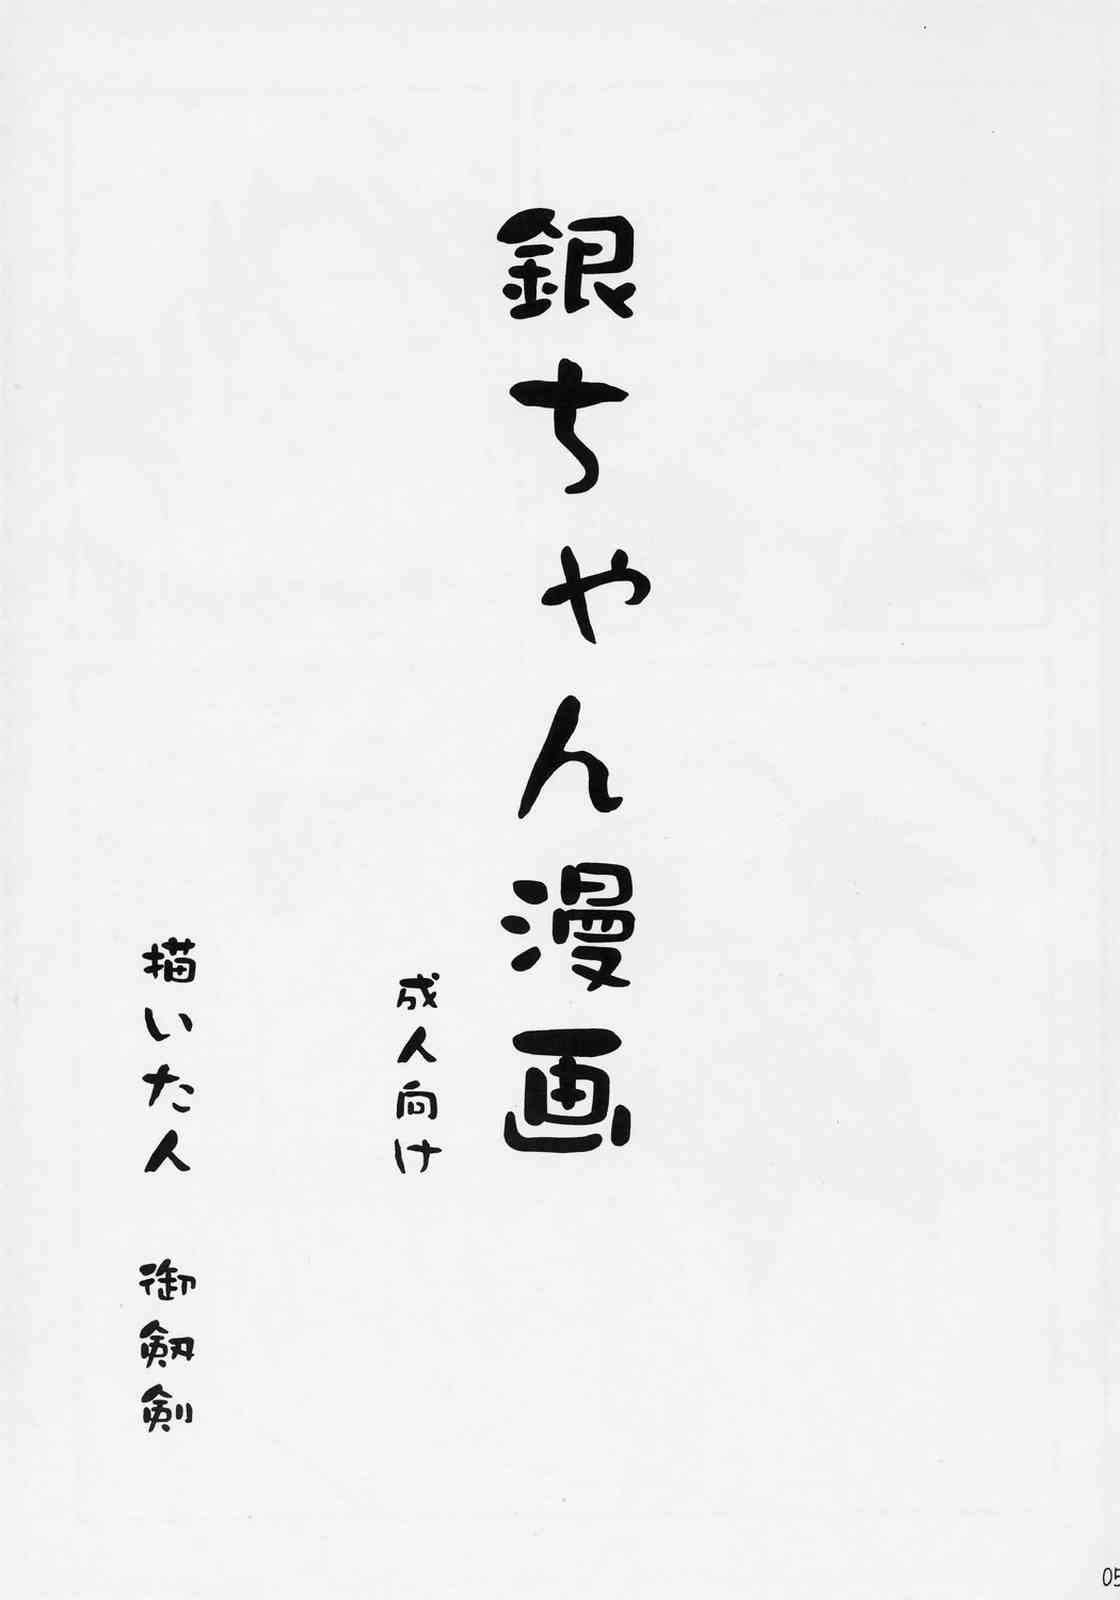 銀ちゃん漫画
成人向け
描いた人　御剱剣
05